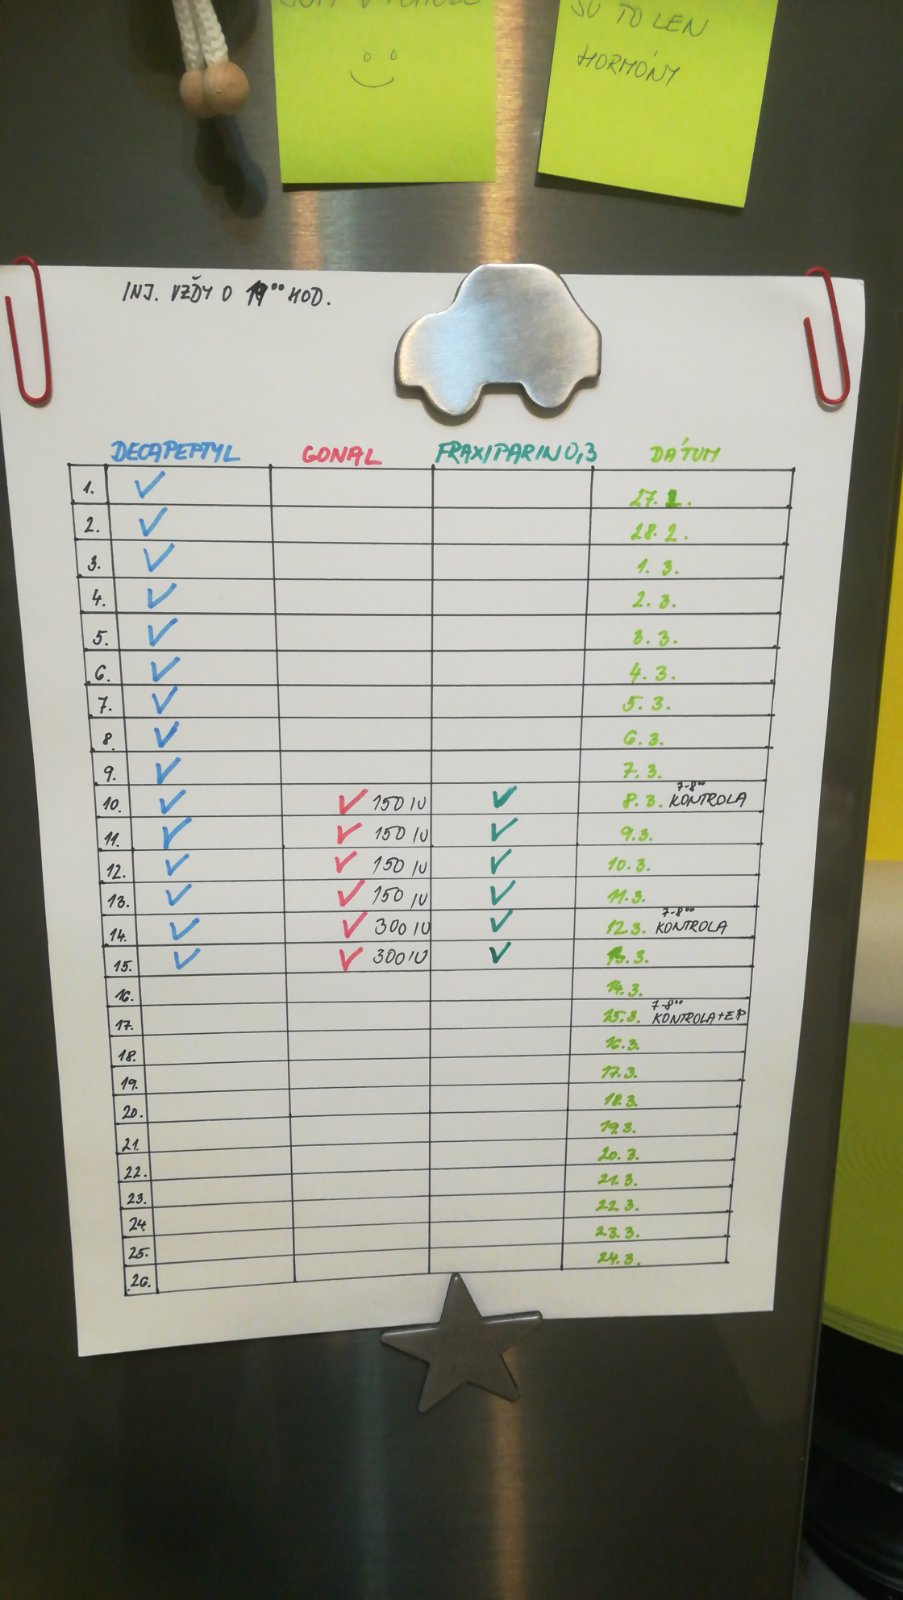 SU TO LEN
HORMÓNY
INJ. VŽDY O 19⁰⁰ HOD.
DECAPEPTYL GONAL FRAXIPARIN 0,3 DÁTUM
1. ✓ 27. 2.
2. ✓ 28. 2.
3. ✓ 1. 3.
4. ✓ 2. 3.
5. ✓ 3. 3.
6. ✓ 4. 3.
7. ✓ 5. 3.
8. ✓ 6. 3.
9. ✓ 7. 3.
10. ✓ ✓ 150 IU ✓ 8. 3. 7-8⁰⁰ KONTROLA
11. ✓ ✓ 150 IU ✓ 9.3.
12. ✓ ✓ 150 IU ✓ 10.3.
13. ✓ ✓ 150 IU ✓ 11.3.
14. ✓ ✓ 300 IU ✓ 12.3. 7-8⁰⁰ KONTROLA
15. ✓ ✓ 300 IU ✓ 13.3.
16. 14.3.
17. 15.3. 7-8⁰⁰ KONTROLA+EP
18. 16.3.
19. 17.3.
20. 18.3.
21. 19.3.
22. 20.3.
23. 21.3.
24. 22.3.
25. 23.3.
26. 24.3.